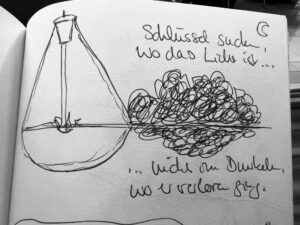 Schlüssel suchen,
wo das Licht ist...
... nicht im Dunkeln,
wo er verloren ging.